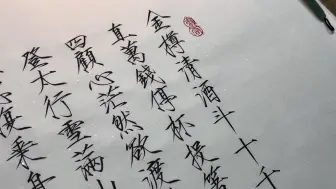 金樽清酒斗十千
直萬錢停杯投
四顧心茫然欲渡
登太行雪滿
復乘舟